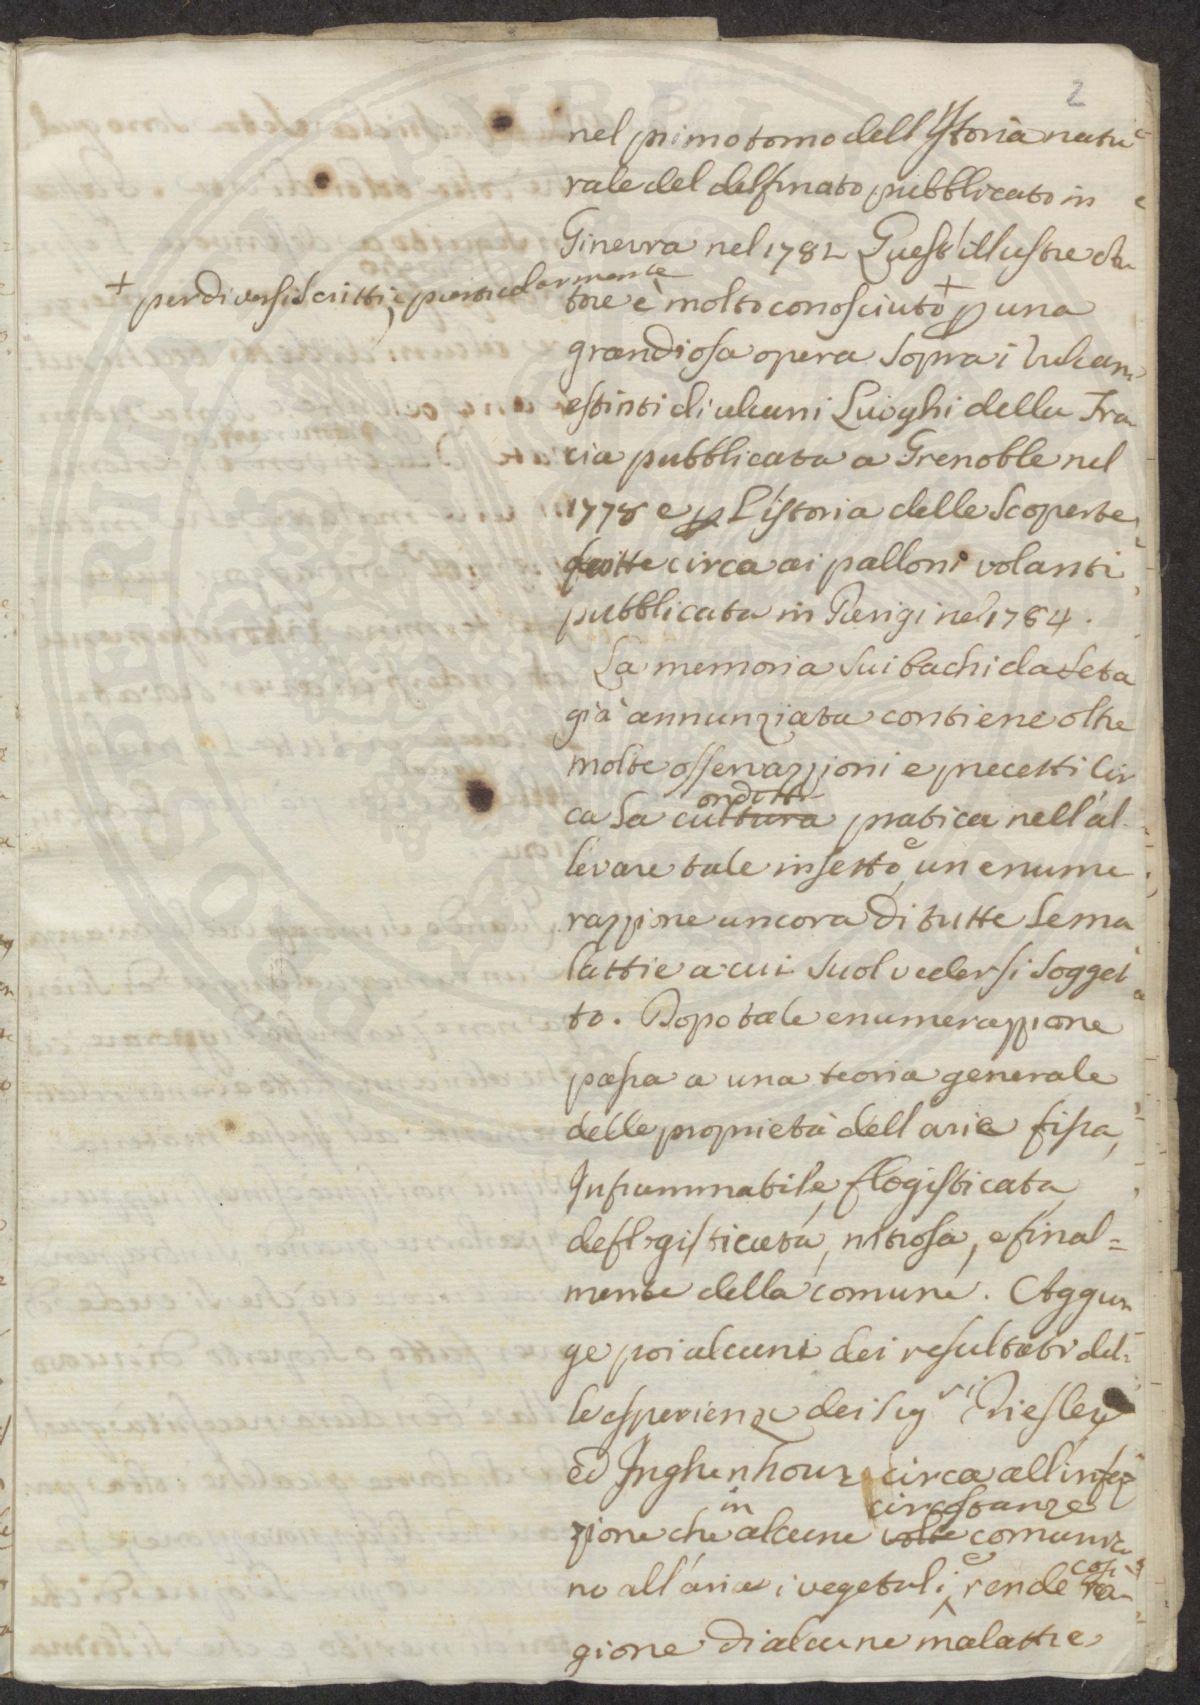 2
nel primo tomo dell'Istoria natu
rale del delfinato pubblicato in
Ginevra nel 1782 Quest'illustre au
+ per diversi scritti, e particolarmente
tore è molto conosciuto + p una
grandiosa opera sopra i Vulcani
estinti di alcuni Luoghi della Fra
cia pubblicata a Grenoble nel
1778 e p L'istoria delle Scoperte
fatte circa ai palloni volanti
pubblicata in Parigi nel 1784.
La memoria sui bachi da seta
già annunziata contiene oltre
molte osservazzioni e precetti cir
ondotta
ca la cultura pratica nell'al
levare tale insetto, e un enume
razzione ancora di tutte le ma
lattie a cui suol vedersi sogget
to. Dopo tale enumerazzione
passa a una teoria generale
delle proprietà dell aria fissa,
Infiammabile, flogisticata,
deflogisticata, nitrosa, e final=
mente della comune. Aggiun
ge poi alcuni dei resultati del=
le esperienze dei Sigri Priesley
ed Inghenhouz circa all'infe
in circostanze
zione che alcune volte comunica
no all'aria i vegetali, e rende così ra
gione di alcune malattie